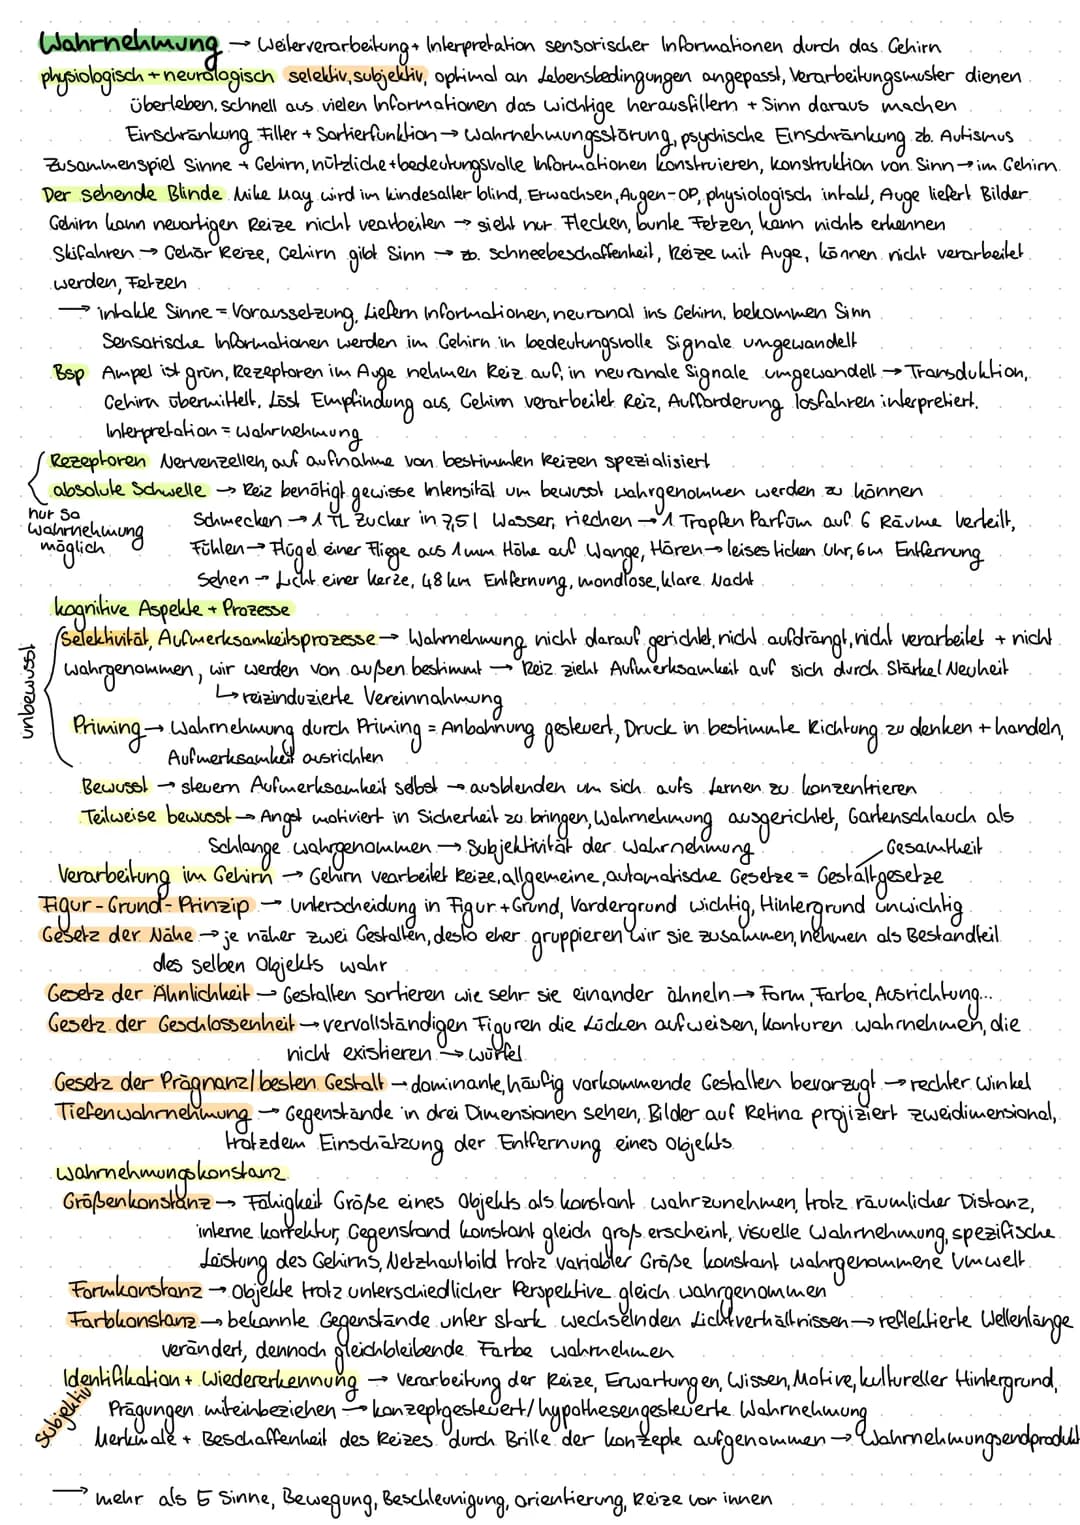 Wahrnehmung → Weiterverarbeitung + Interpretation sensorischer Informationen durch das Gehirn
physiologisch + neurologisch selektiv, subjektiv, optimal an Lebensbedingungen angepasst, Verarbeitungsmuster dienen
überleben, schnell aus vielen Informationen das wichtige herausfiltern + Sinn daraus machen
Einschränkung Filter + Sortierfunktion → Wahrnehmungsstörung, psychische Einschränkung zb. Autismus
Zusammenspiel Sinne + Gehirn, nützliche + bedeutungsvolle Informationen konstruieren, Konstruktion von Sinn → im Gehirn
Der sehende Blinde Mike May wird im Kindesalter blind, Erwachsen, Augen-OP, physiologisch intakt, Auge liefert Bilder
Gehirn kann neuartigen Reize nicht vearbeiten → sieht nur Flecken, bunte Fetzen, kann nichts erkennen
Skifahren → Gehör Reize, Gehirn gibt Sinn → zb. Schneebeschaffenheit, Reize mit Auge, können nicht verarbeitet
werden, Fetzen
→ intakte Sinne = Voraussetzung, Liefern Informationen, neuronal ins Gehirn, bekommen Sinn
Sensorische Informationen werden im Gehirn in bedeutungsvolle Signale umgewandelt
Bsp Ampel ist grün, Rezeptoren im Auge nehmen Reiz auf, in neuronale Signale umgewandelt → Transduktion,
Gehirn übermittelt, Löst Empfindung aus, Gehirn verarbeitet Reiz, Aufforderung losfahren interpretiert.
Interpretation = Wahrnehmung
Rezeptoren Nervenzellen, auf aufnahme von bestimmten Reizen spezialisiert
absolute Schwelle → Reiz benötigt gewisse Intensität um bewusst wahrgenommen werden zu können
nur so Wahrnehmung möglich
Schmecken → 1 TL Zucker in 7,5 l Wasser, riechen → 1 Tropfen Parfüm auf 6 Räume verteilt,
Fühlen → Flügel einer Fliege aus 1mm Höhe auf Wange, Hören → leises ticken Uhr, 6m Entfernung
Sehen → Licht einer Kerze, 48 km Entfernung, mondlose, klare Nacht
kognitive Aspekte + Prozesse
unbewusst
Selektivität, Aufmerksamkeitsprozesse → Wahrnehmung nicht darauf gerichtet, nicht aufdrängt, nicht verarbeitet + nicht
wahrgenommen, wir werden von außen bestimmt → Reiz zieht Aufmerksamkeit auf sich durch Stärke/Neuheit
↳ reizinduzierte Vereinnahmung
Priming → Wahrnehmung durch Priming = Anbahnung gesteuert, Druck in bestimmte Richtung zu denken + handeln,
Aufmerksamkeit ausrichten
Bewusst → steuern Aufmerksamkeit selbst → ausblenden um sich aufs Lernen zu konzentrieren
Teilweise bewusst → Angst motiviert in Sicherheit zu bringen, Wahrnehmung ausgerichtet, Gartenschlauch als
Schlange wahrgenommen → Subjektivität der Wahrnehmung
Gesamtheit
Verarbeitung im Gehirn → Gehirn vearbeitet Reize, allgemeine, automatische Gesetze = Gestaltgesetze
Figur-Grund-Prinzip → Unterscheidung in Figur + Grund, Vordergrund wichtig, Hintergrund unwichtig
Gesetz der Nähe → je näher zwei Gestalten, desto eher gruppieren wir sie zusammen, nehmen als Bestandteil
des selben Objekts wahr
Gesetz der Ähnlichkeit → Gestalten sortieren wie sehr sie einander ähneln → Form, Farbe, Ausrichtung...
Gesetz der Geschlossenheit → vervollständigen Figuren die Lücken aufweisen, konturen wahrnehmen, die
nicht existieren → würfel
Gesetz der Prägnanz/besten Gestalt → dominante, häufig vorkommende Gestalten bevorzugt → rechter Winkel
Tiefenwahrnehmung → Gegenstände in drei Dimensionen sehen, Bilder auf Retina projiziert zweidimensional,
trotzdem Einschätzung der Entfernung eines Objekts
Wahrnehmungskonstanz
Größenkonstanz → Fähigkeit Größe eines Objekts als konstant wahrzunehmen, trotz räumlicher Distanz,
interne korrektur, Gegenstand konstant gleich groß erscheint, visuelle Wahrnehmung, spezifische
Leistung des Gehirns, Netzhautbild trotz variabler Größe konstant wahrgenommene Umwelt
Formkonstanz → Objekte trotz unterschiedlicher Perspektive gleich wahrgenommen
Farbkonstanz → bekannte Gegenstände unter stark wechselnden Lichtverhältnissen → reflektierte Wellenlänge
verändert, dennoch gleichbleibende Farbe wahrnehmen
Identifikation + Wiedererkennung → Verarbeitung der Reize, Erwartungen, Wissen, Motive, kultureller Hintergrund,
subjektiv
Prägungen miteinbeziehen → konzeptgesteuert/hypothesengesteuerte Wahrnehmung
Merkmale + Beschaffenheit des Reizes durch Brille der konzepte aufgenommen → Wahrnehmungsendprodukt
→ mehr als 5 Sinne, Bewegung, Beschleunigung, orientierung, Reize von innen